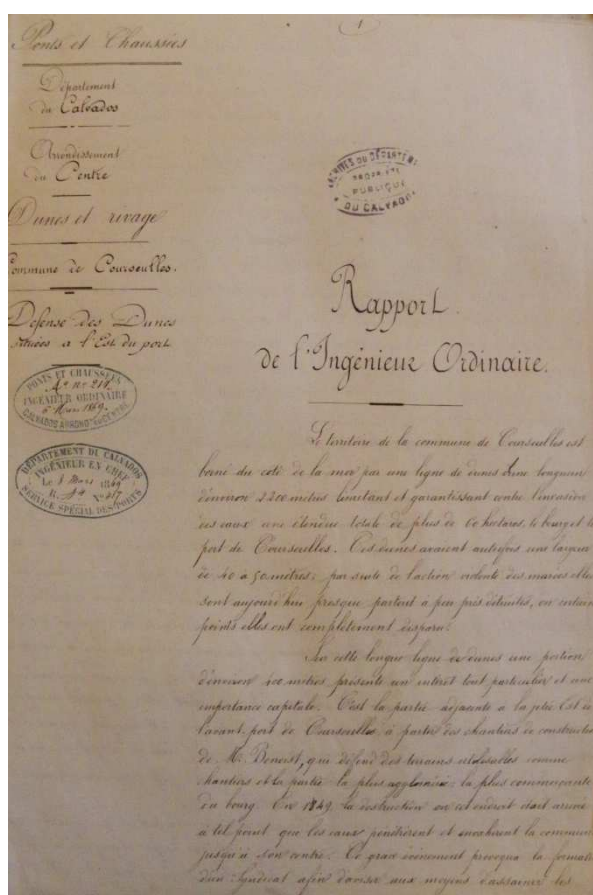 (1)
Ponts et Chaussées
Département
du Calvados
Arrondissement
du Centre
Dunes et rivage
Commune de Courseulles.
Défense des Dunes
situées à l'Est du port
PONTS ET CHAUSSÉES
INGÉNIEUR ORDINAIRE
6 Mars 1869.
CALVADOS ARROND DU CENTRE
DÉPARTEMENT DU CALVADOS
INGÉNIEUR EN CHEF
Le 8 Mars 1869
SERVICE SPÉCIAL DES PORTS
ARCHIVES DU DÉPARTEMT
PROPRIÉTÉ
PUBLIQUE
DU CALVADOS
Rapport
de l'Ingénieur Ordinaire.
Le territoire de la commune de Courseulles est
borné du coté de la mer par une ligne de dunes d'une longueur
d'environ 2200 mètres limitant et garantissant contre l'invasion
des eaux une étendue totale de plus de 60 hectares, le bourg et le
port de Courseulles. Ces dunes avaient autrefois une largeur
de 40 à 50 mètres; par suite de l'action violente des marées elles
sont aujourd'hui presque partout à peu près détruites, en certains
points elles ont complètement disparu.
Sur cette longue ligne de dunes une portion
d'environ 400 mètres présente un intérêt tout particulier et une
importance capitale. C'est la partie adjacente à la jetée Est de
l'avant-port de Courseulles à partir des chantiers de construction
de Mr. Benoist, qui défend des terrains utilisables comme
chantiers et la partie la plus agglomérée, la plus commerçante
du bourg. En 1849, la destruction en cet endroit était arrivée
à tel point que les eaux pénétrèrent et envahirent la commune
jusqu'à son centre. Ce grave évènement provoqua la formation
d'un Syndicat afin d'aviser aux moyens d'assainir les